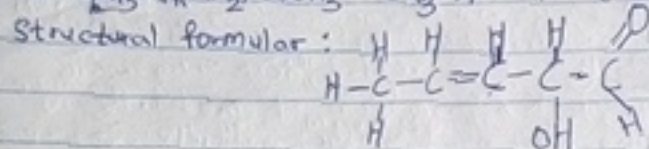 Structural formular : H H H H O
H-C-C=C-C-C
H OH H